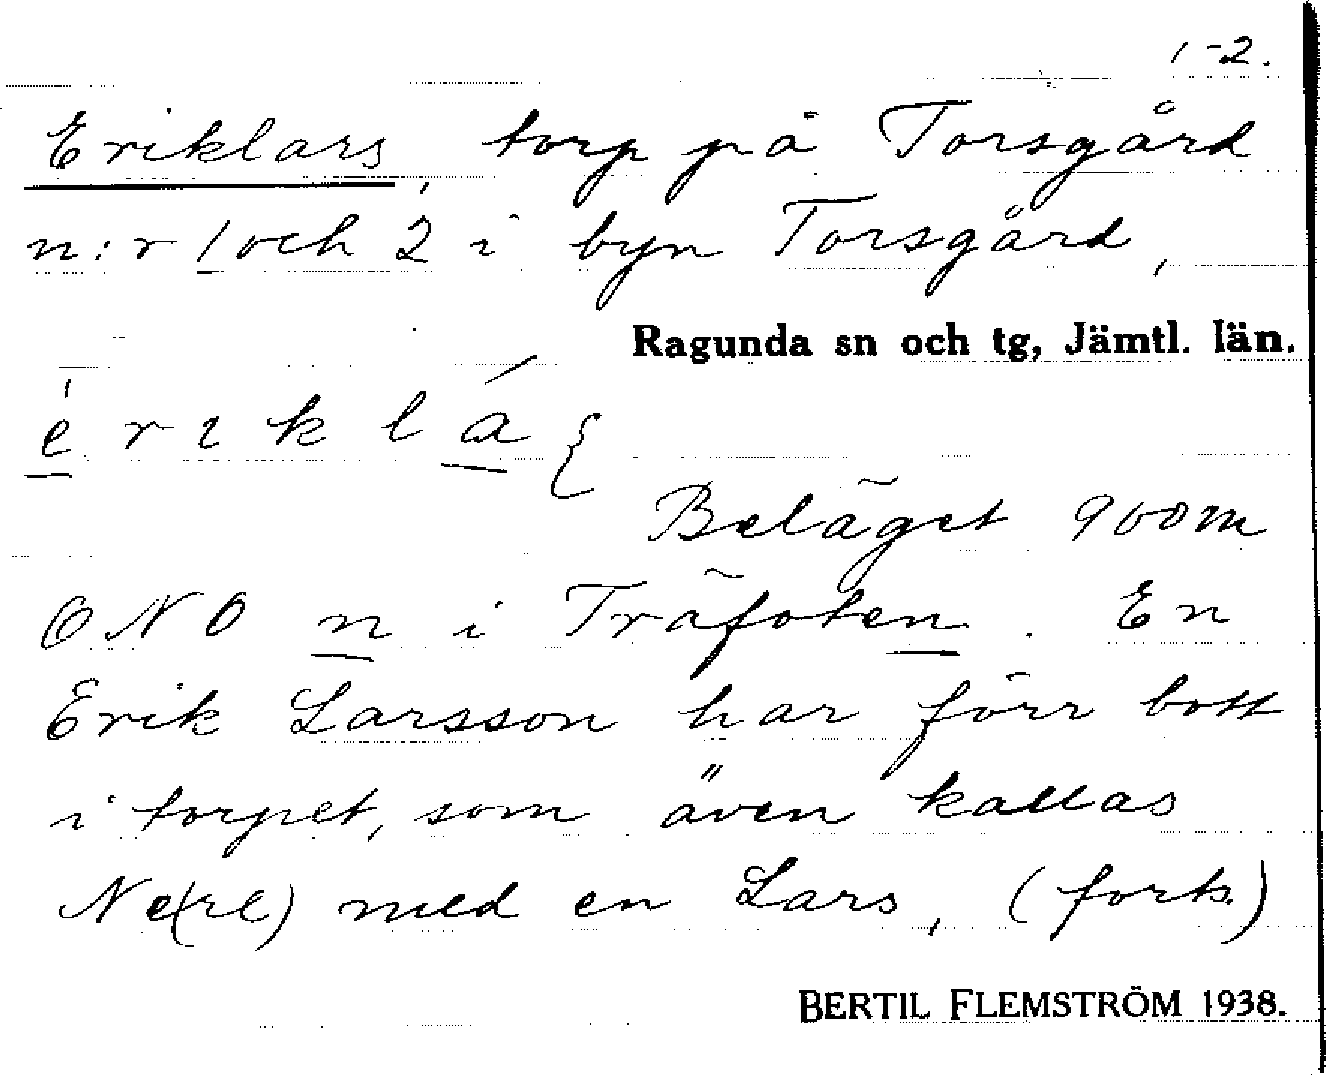 1-2.
Eriklars, torp på Torsgård
n:r 1 och 2 i byn Torsgård,
Ragunda sn och tg, Jämtl. län.
é r ɩ k l á {
Beläget 900m
ONO n i Träfoten. En
Erik Larsson har förr bott
i torpet, som även kallas
Ne(re) med en Lars, (forts.)
BERTIL FLEMSTRÖM 1938.